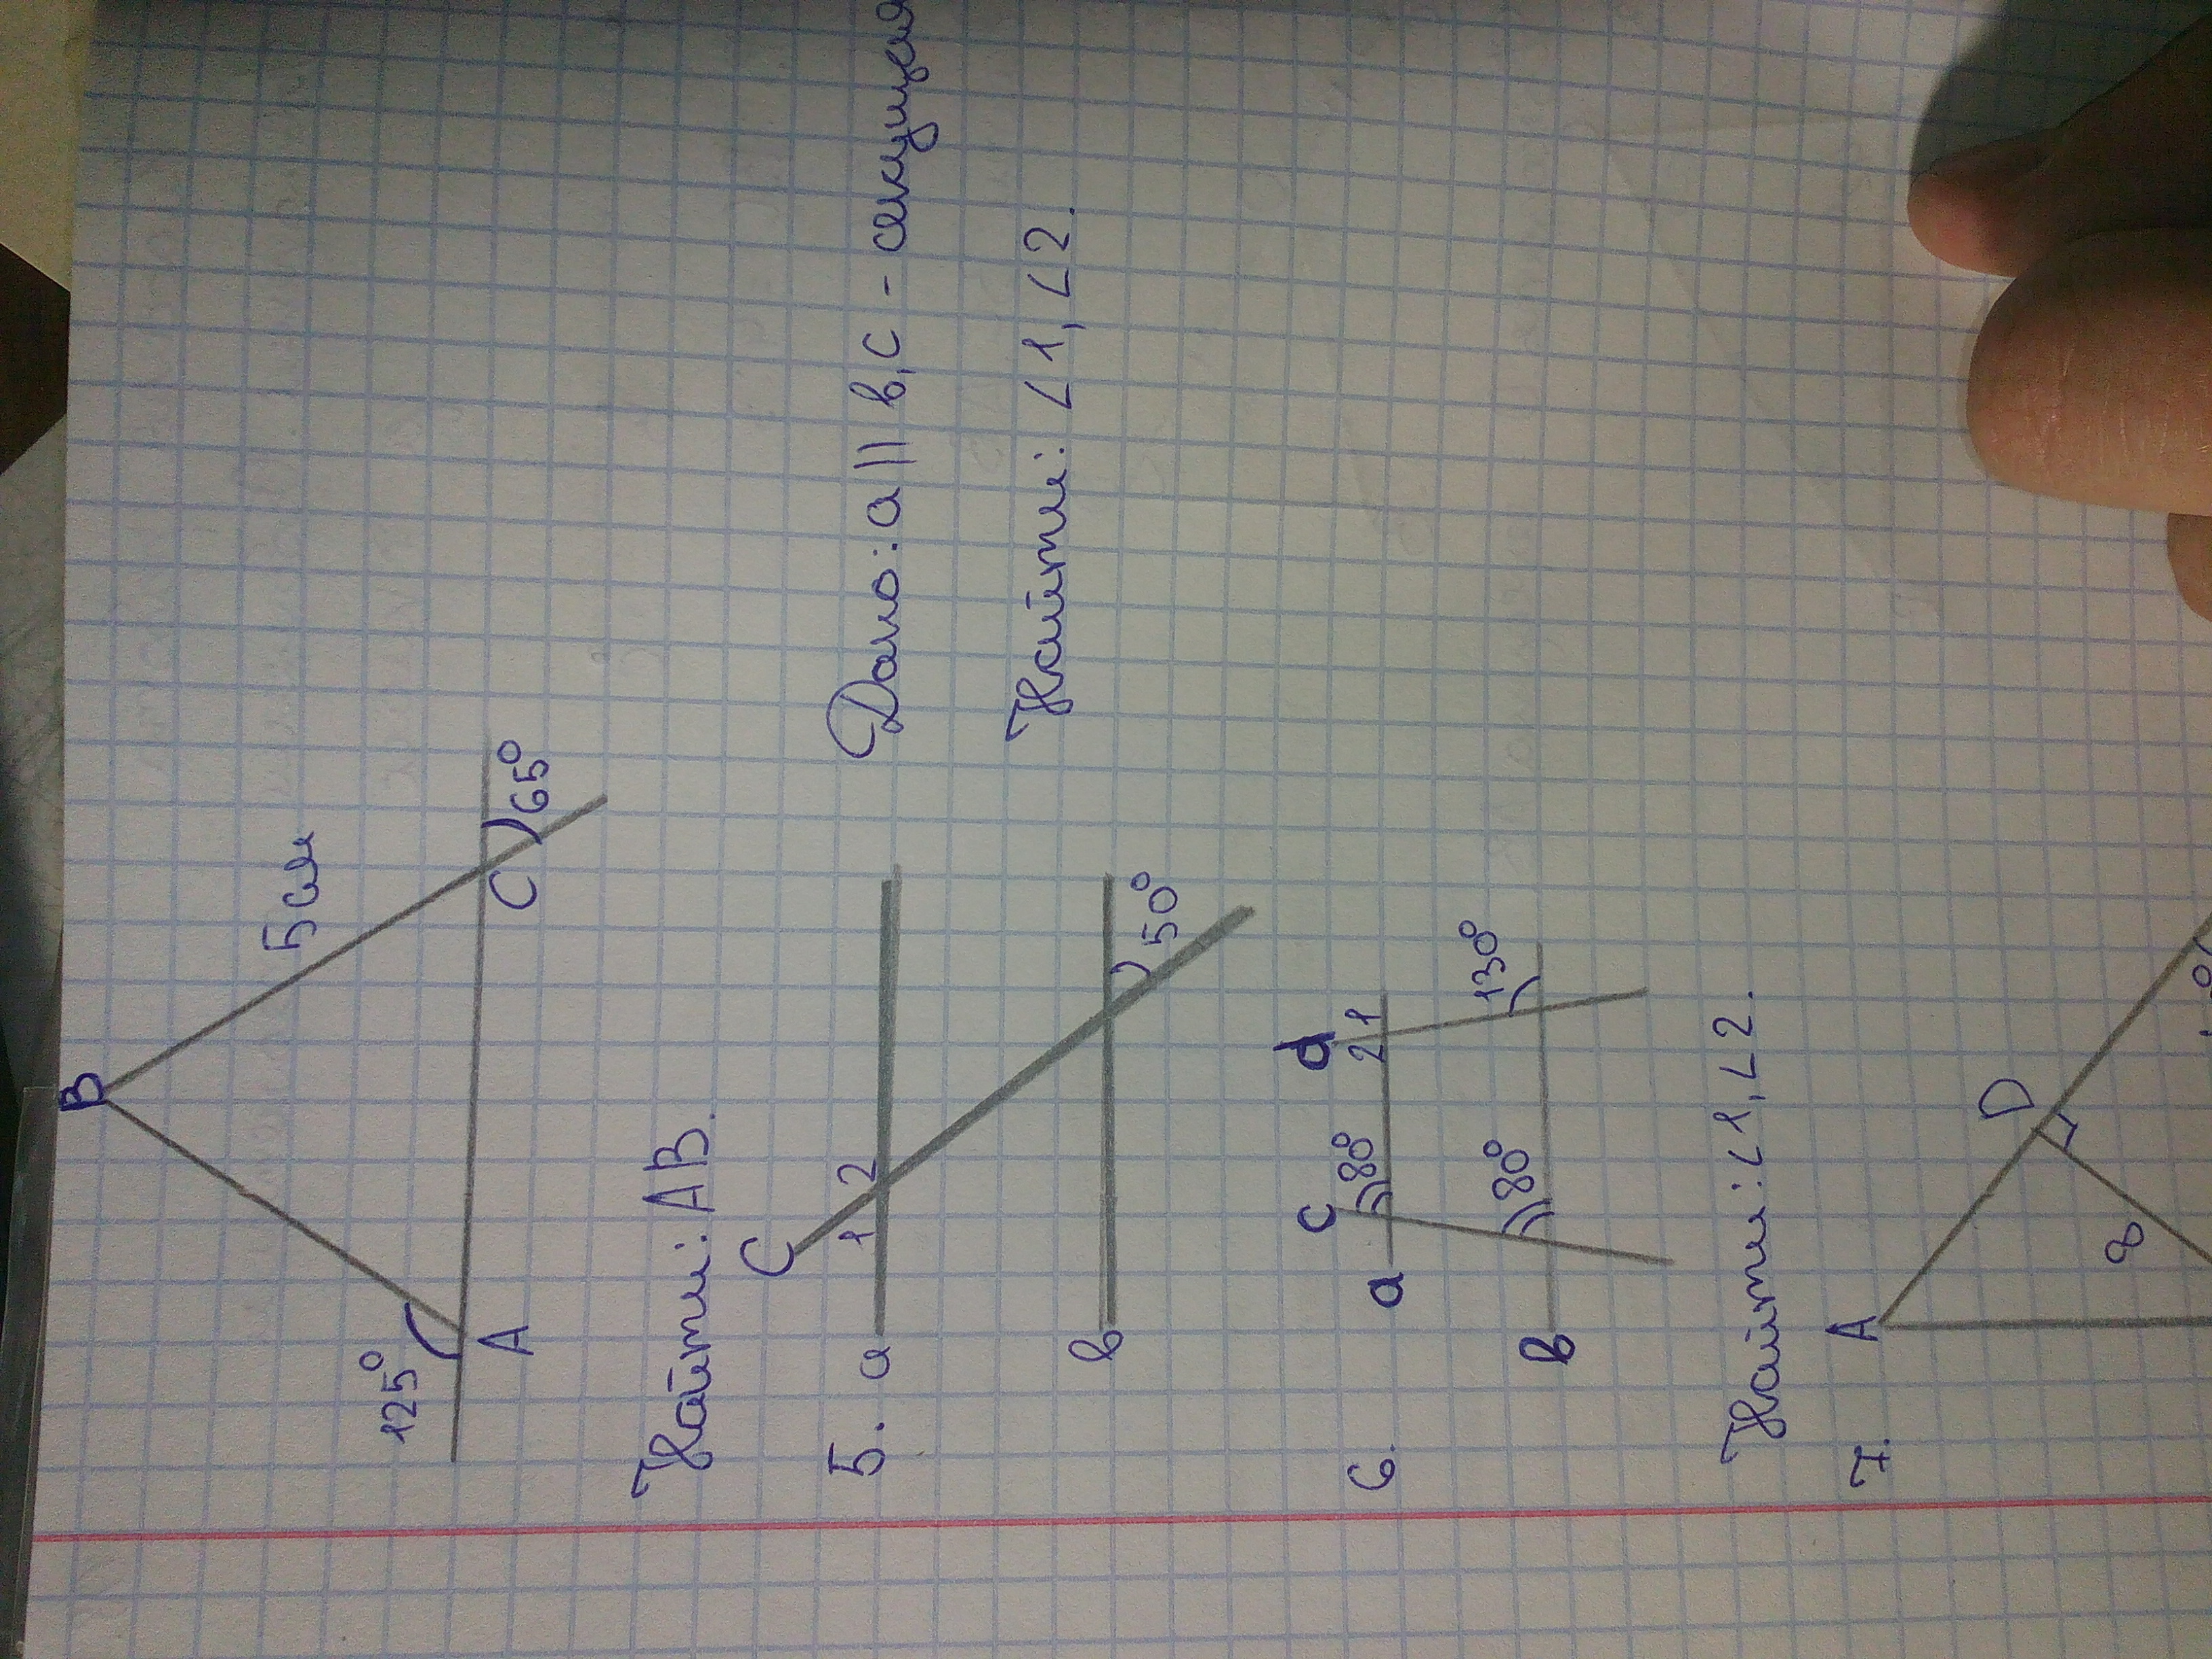 B
5 см
125°
A
C
65°
Найти: AB.
C
5. a
1 2
Дано: a || b, c - секущая
b
50°
Найти: ∠1, ∠2.
c
d
6.
a
80°
2 1
b
80°
130°
Найти: ∠1, ∠2.
7.
A
D
8